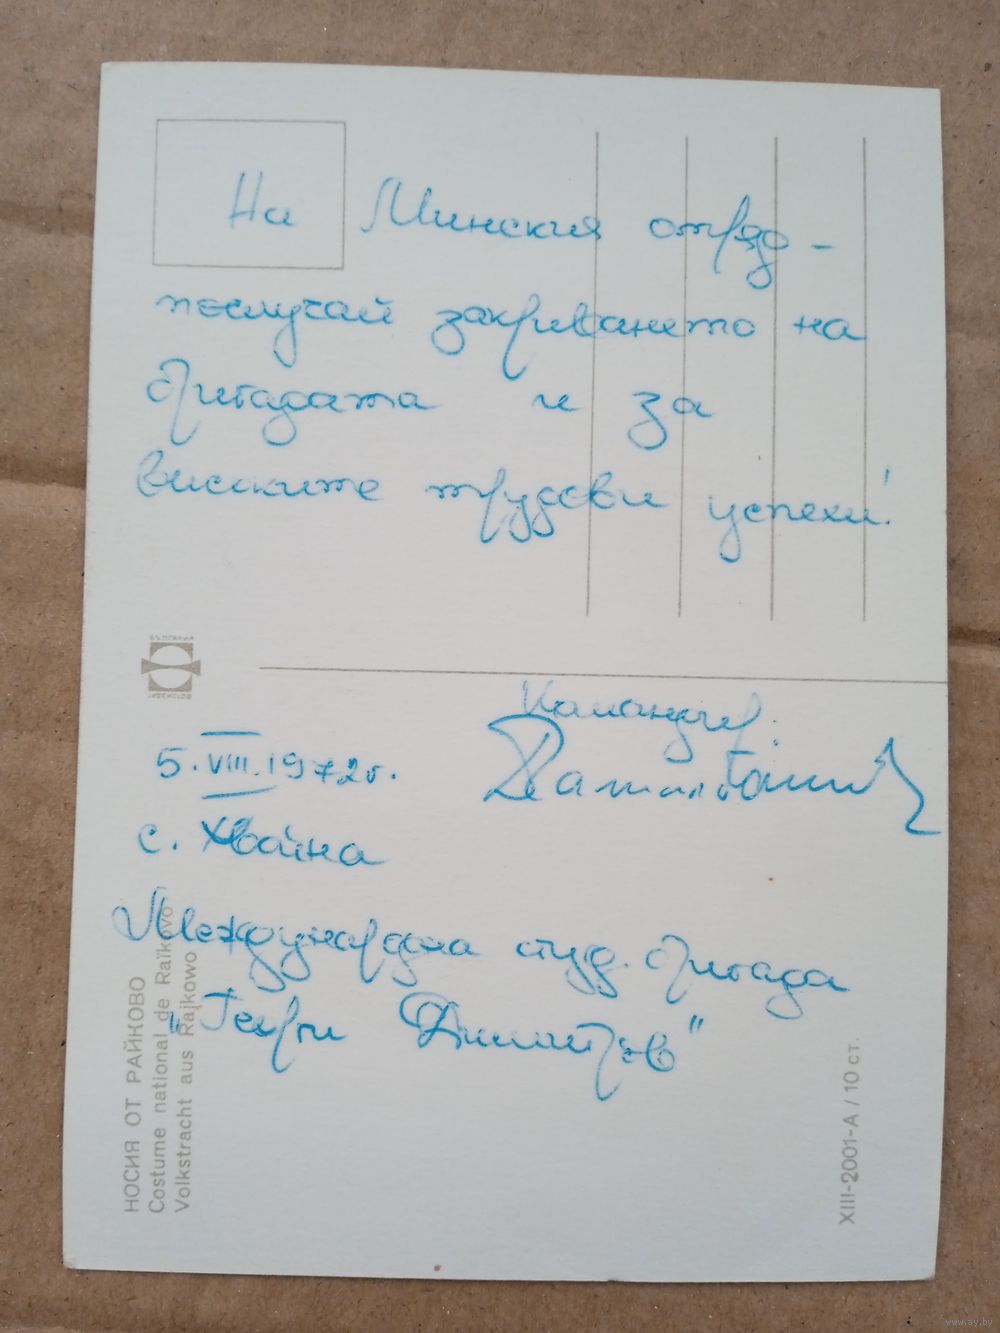 На Минския отряд –
послучай закриването на
бригадата и за
високите трудови успехи!
Командир:
5.VIII.1972г.
с. Хвойна
Международна студ. бригада
„Георги Димитров"
НОСИЯ ОТ РАЙКОВО
Costume national de Raïkovo
Volkstracht aus Rajkowo
XIII-2001-А / 10 ст.
www.ay.by